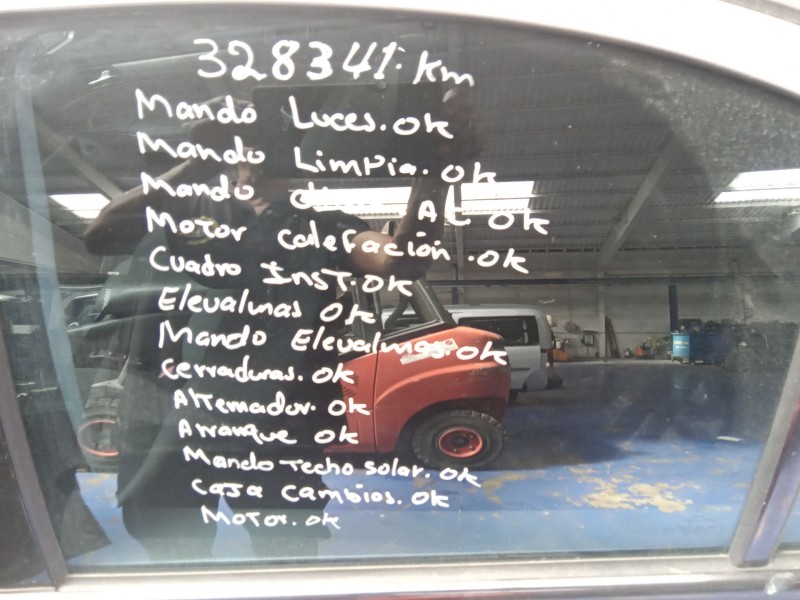 328341. Km
Mando Luces. ok
Mando Limpia. ok
Mando AC ok
Motor calefación. ok
Cuadro Inst. ok
Elevalunas ok
Mando Elevalunas. ok
cerraduras. ok
Alternador. ok
Arranque ok
Mando techo solar. ok
Caja cambios. ok
Motor. ok